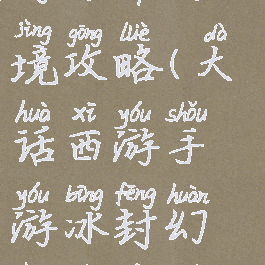 jìng gōng lüè dà
境攻略(大
huà xī yóu shǒu
话西游手
yóu bīng fēng huàn
游冰封幻